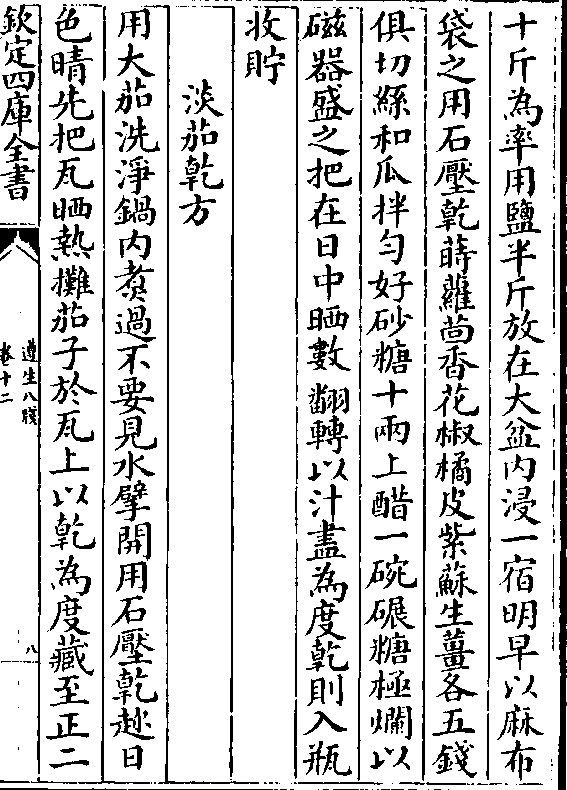 十斤為率用鹽半斤放在大盆内浸一宿明早以麻布
袋之用石壓乾蒔蘿茴香花椒橘皮紫蘇生薑各五錢
俱切絲和瓜拌匀好砂糖十兩上醋一碗碾糖極爛以
磁器盛之把在日中晒數翻轉以汁盡為度乾則入瓶
收貯
淡茄乾方
用大茄洗淨鍋内煑過不要見水擘開用石壓乾趂日
色晴先把瓦晒熱攤茄子於瓦上以乾為度藏至正二
欽定四庫全書
遵生八牋
卷十二
八